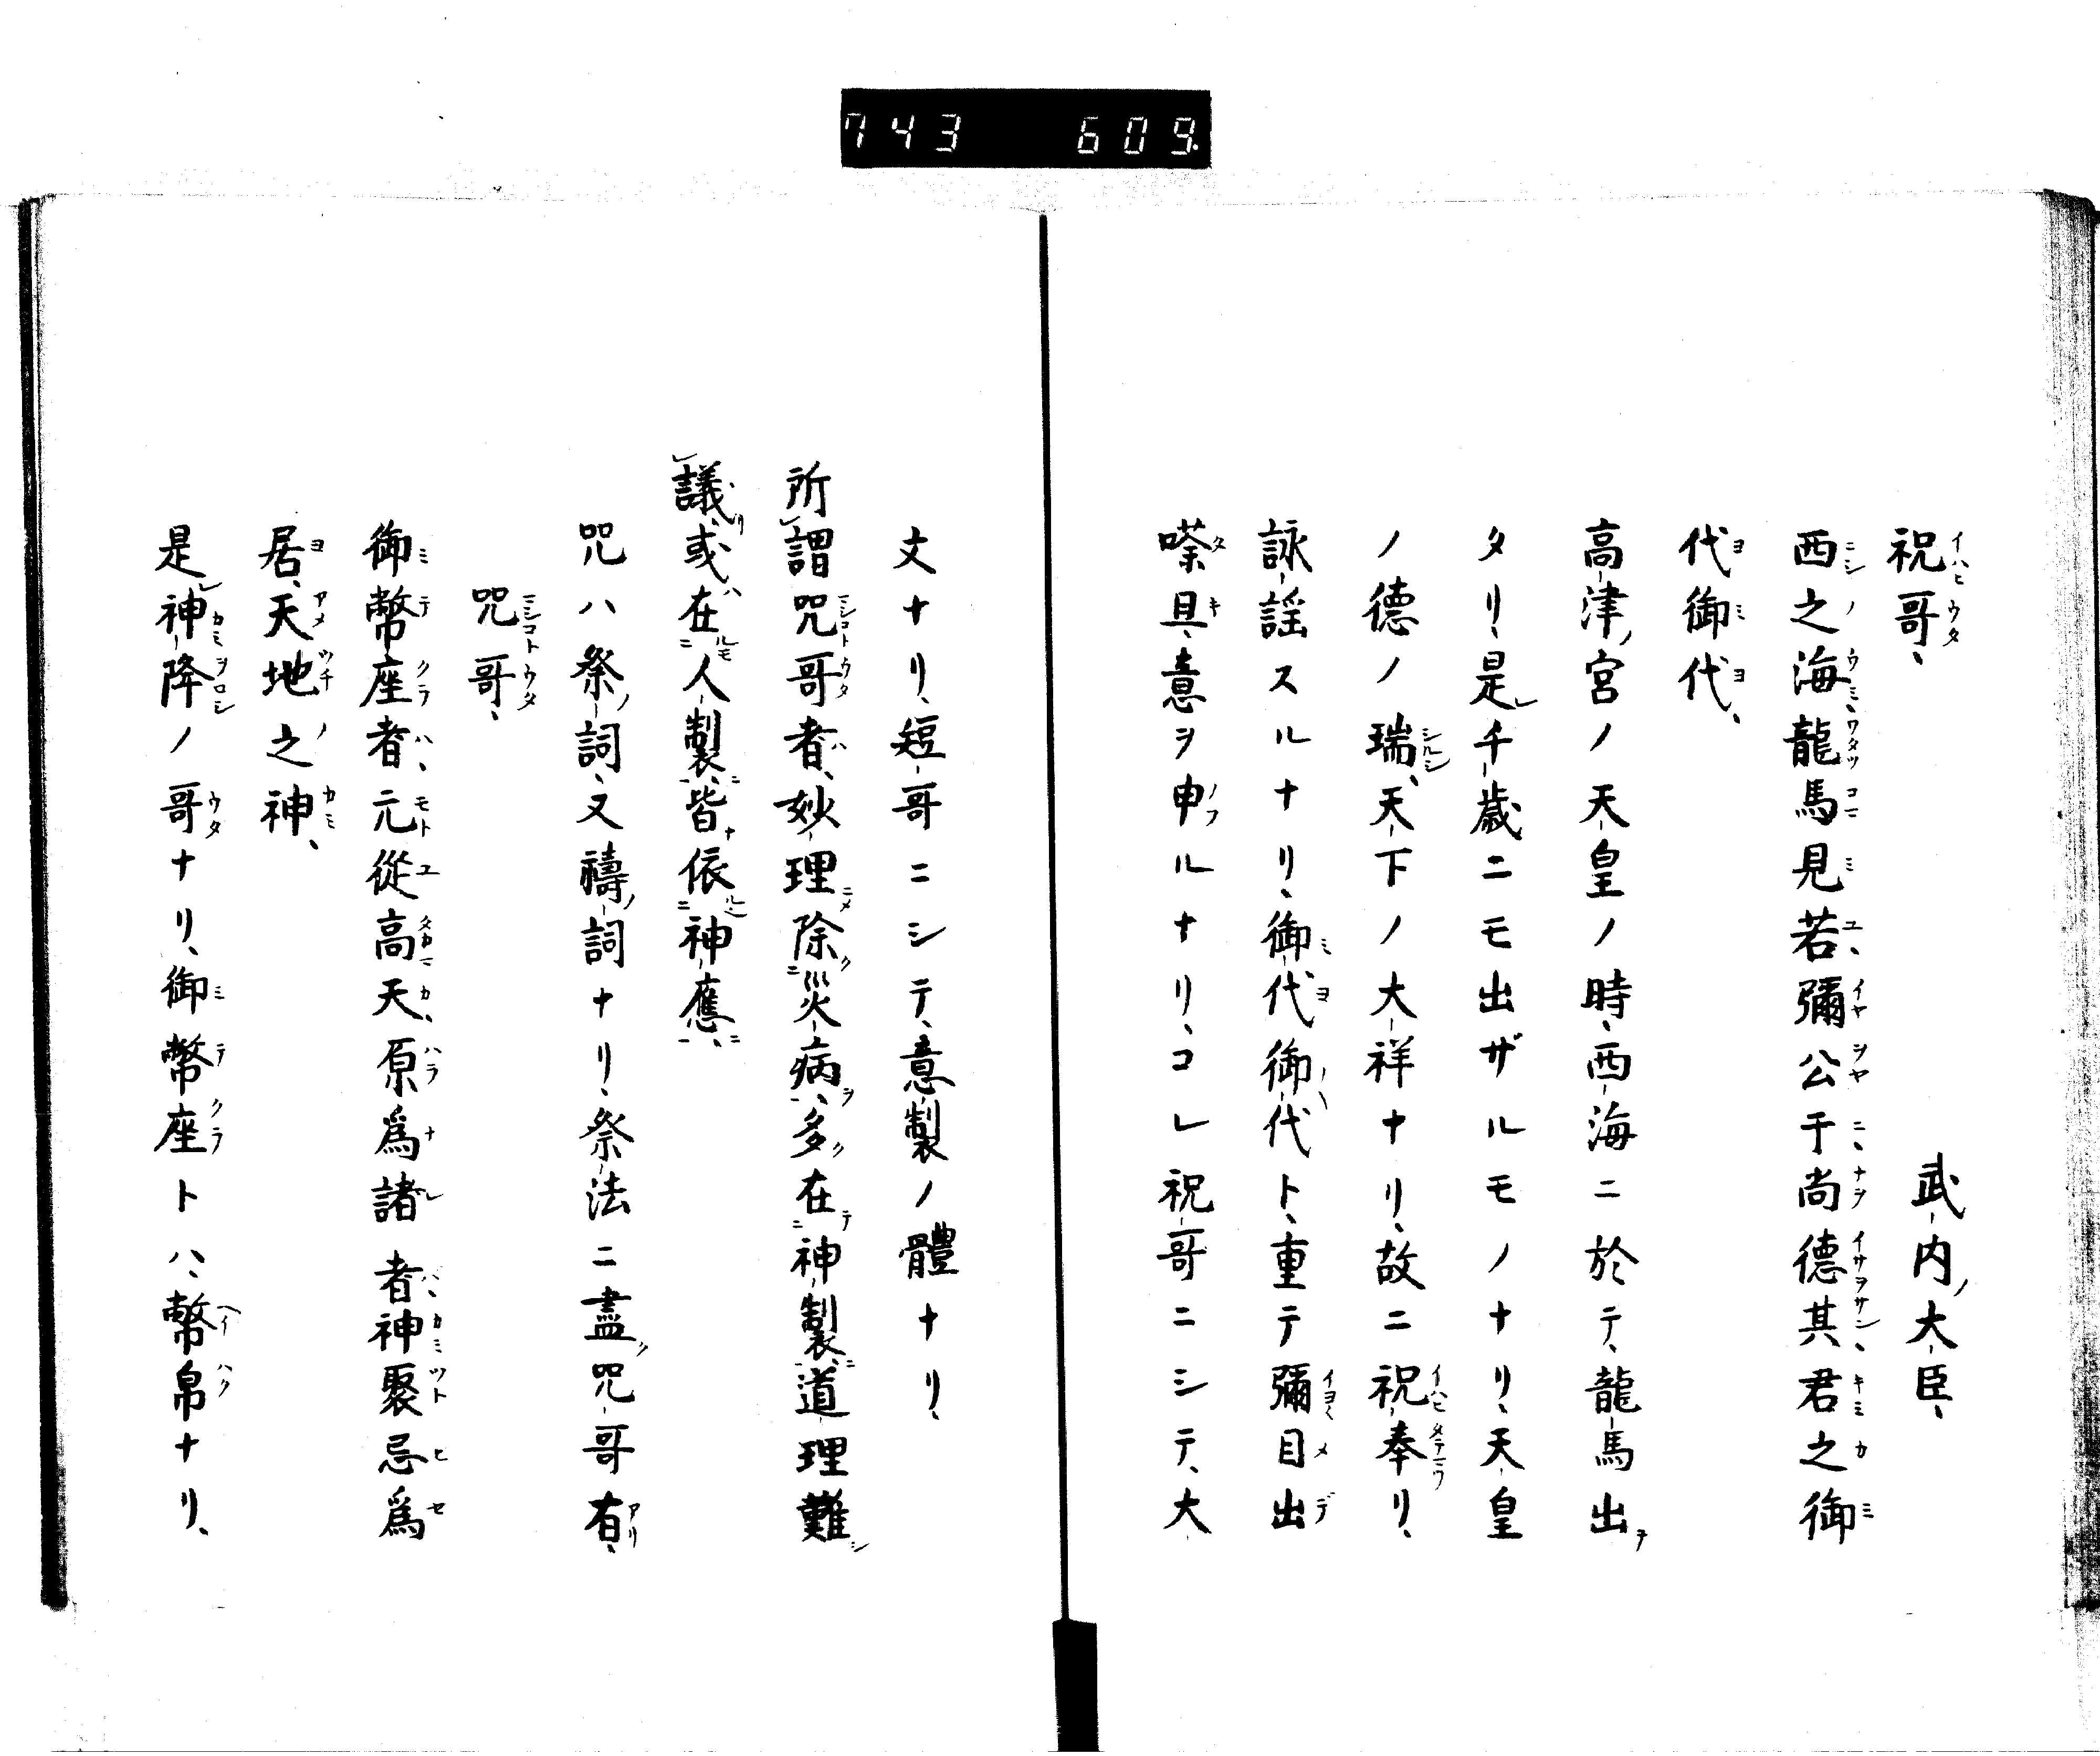 743 609.
祝哥、 武内ノ大臣、
西之海、龍馬見若、彌公于、尚德其、君之御
代御代、
高津ノ宮ノ天皇ノ時、西海ニ於テ、龍馬出
タリ、是レ千歳ニモ出ザルモノナリ、天皇
ノ德ノ瑞、天下ノ大祥ナリ、故ニ祝奉リ、
詠謡スルナリ、御代御代ト、重テ彌目出
意ヲ申ルナリ、コレ祝哥ニシテ、大
丈ナリ、短哥ニシテ、意製ノ體ナリ、
所謂咒哥者、妙理除災病、多在神製、道理難
議、或在人製、皆依神應、
咒ハ祭ノ詞、又禱ノ詞ナリ、祭法ニ盡ク咒哥有、
咒哥、
御幣座者、元從高天、原爲諸者、神聚忌爲
居、天地之神、
是レ神降ノ哥ナリ、御幣座トハ、幣帛ナリ、